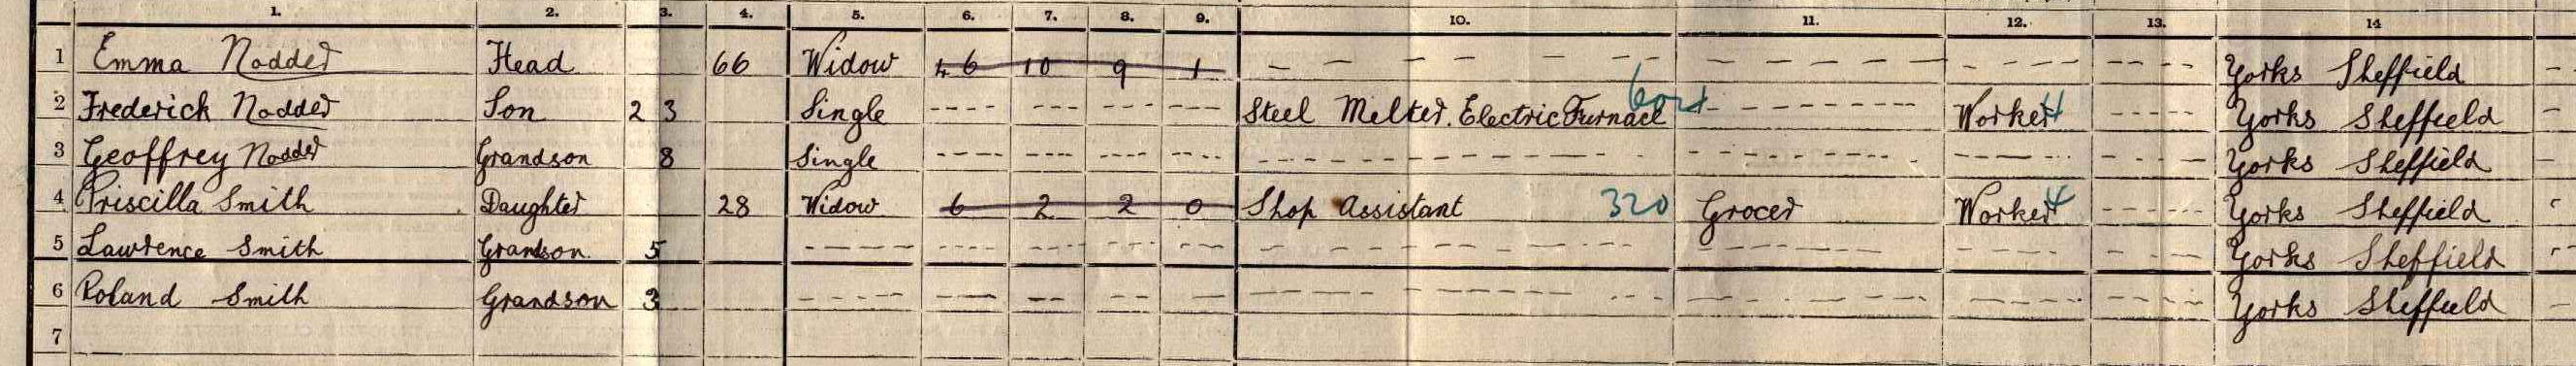 1. 2. 3. 4. 5. 6. 7. 8. 9. 10. 11. 12. 13. 14
1 Emma Nodder Head 66 Widow 46 10 9 1 - - - - - - - - - - - - - - - - - - - - Yorks Sheffield
2 Frederick Nodder Son 23 Single - - - - - - - - - - - - - Steel Melter. Electric Furnace - - - - - - - - Worker 4 - - - - Yorks Sheffield
3 Geoffrey Nodder Grandson 8 Single - - - - - - - - - - - - - - - - - - - - - - - - - - - - Yorks Sheffield
4 Priscilla Smith Daughter 28 Widow 6 2 2 0 Shop Assistant 320 Grocer Worker 4 - - - - Yorks Sheffield
5 Lawrence Smith Grandson 5 - - - - - - - - - - - - - - - - - - - - - - - - - - - - Yorks Sheffield
6 Roland Smith Grandson 3 - - - - - - - - - - - - - - - - - - - - - - - - - - - - Yorks Sheffield
7